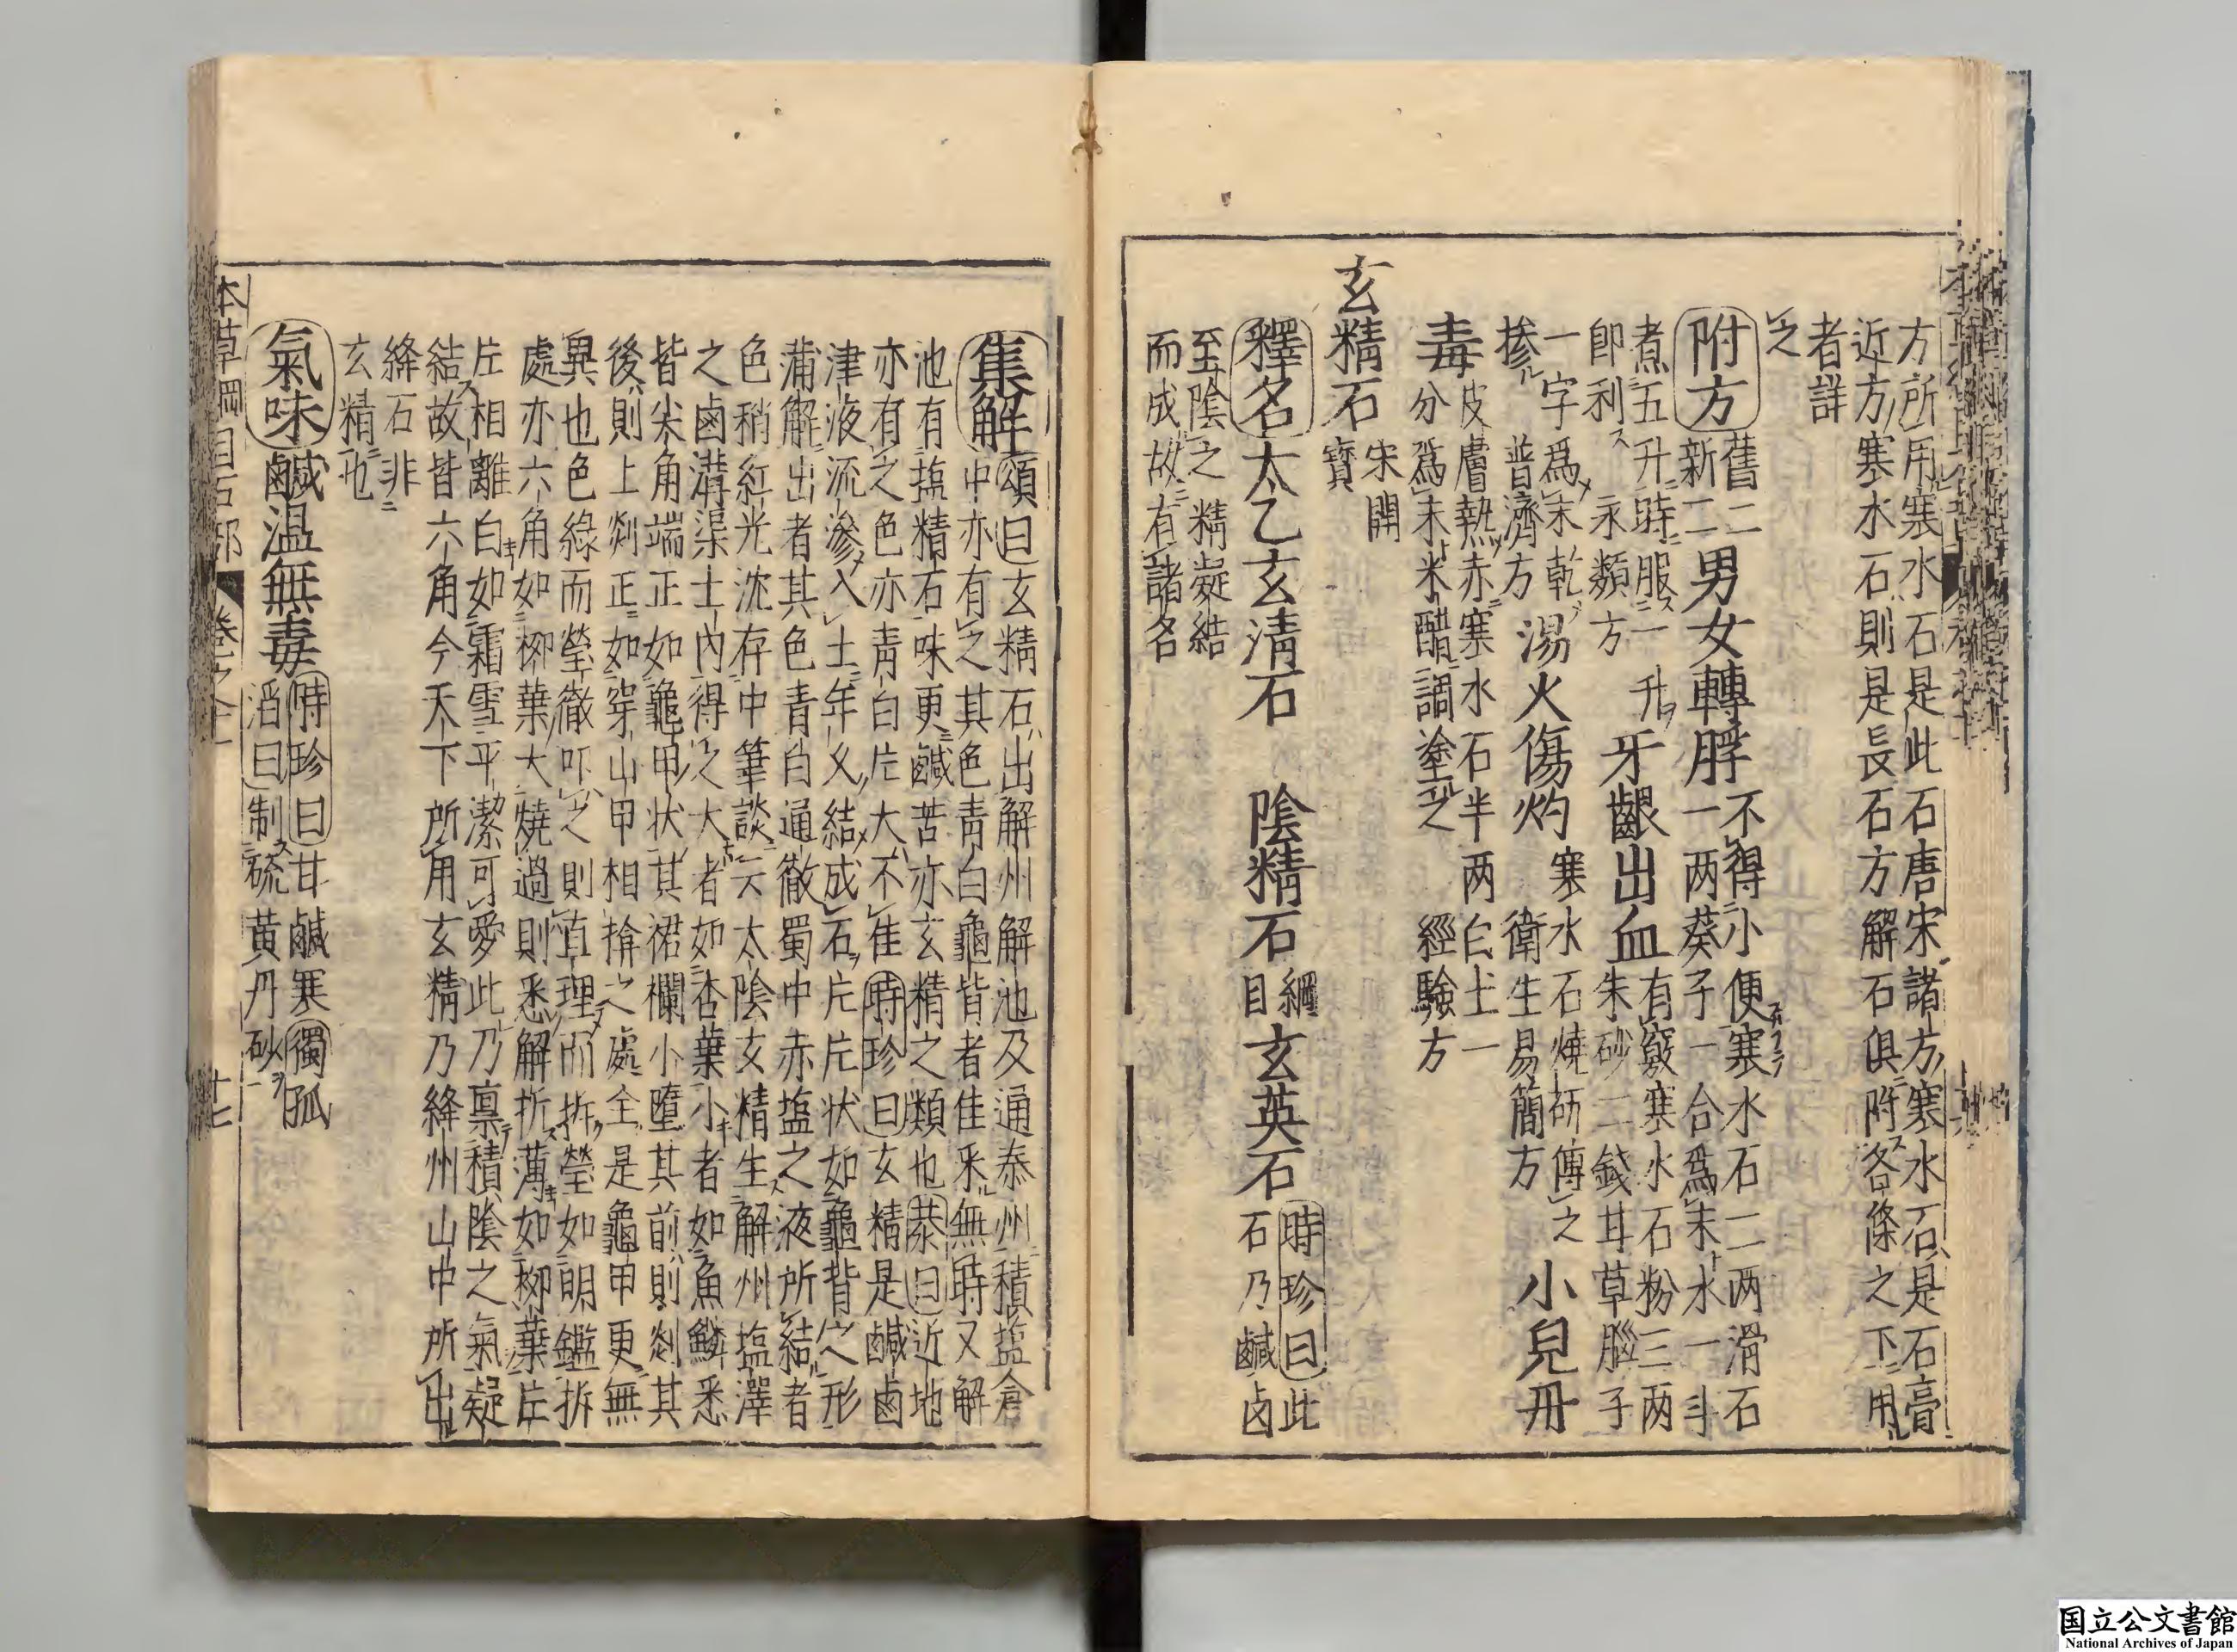 方所用寒水石是此石唐宋諸方寒水石是石膏
近方寒水石則是長石方解石俱附各條之下用
者詳
之
附方舊二
新二男女轉脬不得小便寒水石二两滑石
一两葵子一合為末水一斗
煮五升時服一升
即利 永類方牙齦出血有竅寒水石粉三两
朱砂二錢甘草腦子
一字為末乾
摻 普濟方湯火傷灼寒水石燒研傅之
衛生易簡方小兒丹
毒皮膚熱赤寒水石半两白土一
分為末米醋調塗之 經驗方
玄精石宋開
寶
釋名太乙玄清石 陰精石綱
目玄英石時珍曰此
石乃鹹卤
至陰之精凝結
而成故有諸名
集解頌曰玄精石出解州解池及通泰州積塩倉
中亦有之其色青白龜背者佳釆無時又解
池有塩精石味更鹹苦亦玄精之類也恭曰近地
亦有之色亦青白片大不佳時珍曰玄精是鹹鹵
津液流滲入土年乆結成石片片状如龜背之形
蒲解出者其色青白通徹蜀中赤塩之液所結者
色稍紅光沈存中筆談云太陰玄精生解州塩澤
之鹵溝渠土内得之大者如杏葉小者如魚鱗悉
皆尖角端正如龜甲状其裙襴小墮其前則剡其
後則上剡正如穿山甲相揜之處全是龜甲更無
異也色綠而瑩徹叩之則直理而拆瑩如明鑑拆
處亦六角如柳葉大燒過則悉解折薄如柳葉片
片相離白如霜雪平潔可愛此乃禀積陰之氣凝
結故皆六角今天下所用玄精乃絳州山中所出
絳石非
玄精也
氣味鹹温無毒時珍曰甘鹹寒獨孤
滔曰制硫黄丹砂
本草綱目石部 卷之十一 廿七
国立公文書館
National Archives of Japan